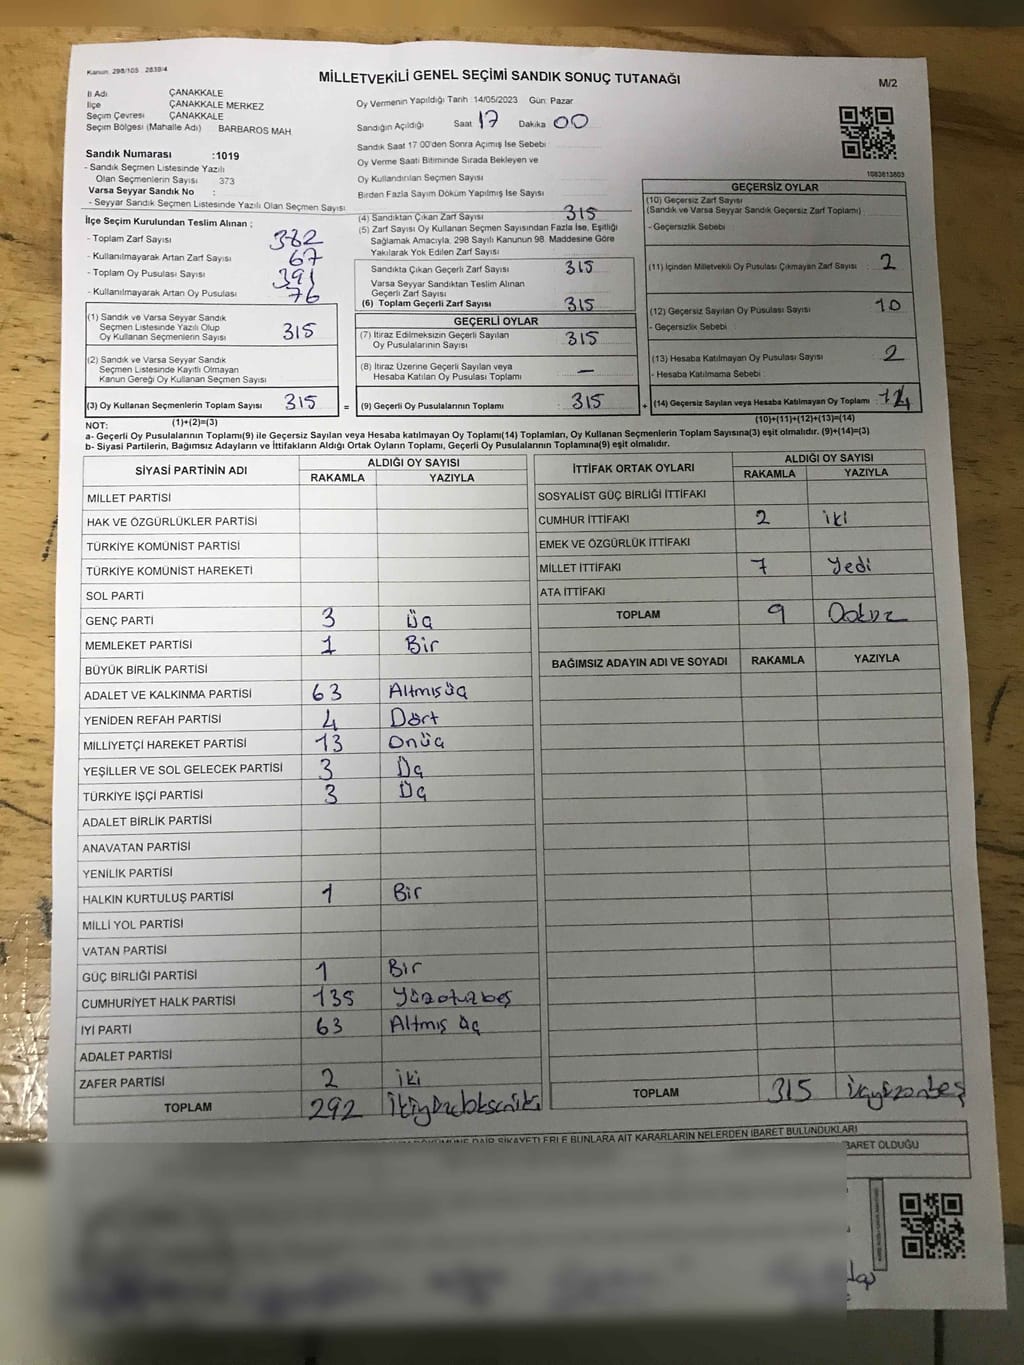 Kanun. 298/105 2839/4
MİLLETVEKİLİ GENEL SEÇİMİ SANDIK SONUÇ TUTANAĞI
M/2
İl Adı ÇANAKKALE
İlçe ÇANAKKALE MERKEZ
Seçim Çevresi ÇANAKKALE
Seçim Bölgesi (Mahalle Adı) BARBAROS MAH
Oy Vermenin Yapıldığı Tarih :14/05/2023 Gün: Pazar
Sandığın Açıldığı Saat 17 Dakika 00
Sandık Saat 17 00'den Sonra Açımış İse Sebebi
Oy Verme Saati Bitiminde Sırada Bekleyen ve
Oy Kullandırılan Seçmen Sayısı
Birden Fazla Sayım Döküm Yapılmış İse Sayısı
1083613803
Sandık Numarası :1019
- Sandık Seçmen Listesinde Yazılı
Olan Seçmenlerin Sayısı 373
Varsa Seyyar Sandık No :
- Seyyar Sandık Seçmen Listesinde Yazılı Olan Seçmen Sayısı
İlçe Seçim Kurulundan Teslim Alınan ;
- Toplam Zarf Sayısı 382
- Kullanılmayarak Artan Zarf Sayısı 67
- Toplam Oy Pusulası Sayısı 391
- Kullanılmayarak Artan Oy Pusulası 76
(1) Sandık ve Varsa Seyyar Sandık
Seçmen Listesinde Yazılı Olup
Oy Kullanan Seçmenlerin Sayısı 315
(2) Sandık ve Varsa Seyyar Sandık
Seçmen Listesinde Kayıtlı Olmayan
Kanun Gereği Oy Kullanan Seçmen Sayısı
(3) Oy Kullanan Seçmenlerin Toplam Sayısı 315 =
(1)+(2)=(3)
(4) Sandıktan Çıkan Zarf Sayısı 315
(5) Zarf Sayısı Oy Kullanan Seçmen Sayısından Fazla İse, Eşitliği
Sağlamak Amacıyla, 298 Sayılı Kanunun 98. Maddesine Göre
Yakılarak Yok Edilen Zarf Sayısı
Sandıkta Çıkan Geçerli Zarf Sayısı 315
Varsa Seyyar Sandıktan Teslim Alınan
Geçerli Zarf Sayısı
(6) Toplam Geçerli Zarf Sayısı 315
GEÇERLİ OYLAR
(7) İtiraz Edilmeksizin Geçerli Sayılan
Oy Pusulalarının Sayısı 315
(8) İtiraz Üzerine Geçerli Sayılan veya
Hesaba Katılan Oy Pusulası Toplamı —
(9) Geçerli Oy Pusulalarının Toplamı 315 +
GEÇERSİZ OYLAR
(10) Geçersiz Zarf Sayısı
(Sandık ve Varsa Seyyar Sandık Geçersiz Zarf Toplamı)
- Geçersizlik Sebebi
(11) İçinden Milletvekili Oy Pusulası Çıkmayan Zarf Sayısı : 2
(12) Geçersiz Sayılan Oy Pusulası Sayısı 10
- Geçersizlik Sebebi
(13) Hesaba Katılmayan Oy Pusulası Sayısı 2
- Hesaba Katılmama Sebebi
(14) Geçersiz Sayılan veya Hesaba Katılmayan Oy Toplamı : 14
(10)+(11)+(12)+(13)=(14)
NOT:
a- Geçerli Oy Pusulalarının Toplamı(9) ile Geçersiz Sayılan veya Hesaba katılmayan Oy Toplamı(14) Toplamları, Oy Kullanan Seçmenlerin Toplam Sayısına(3) eşit olmalıdır. (9)+(14)=(3)
b- Siyasi Partilerin, Bağımsız Adayların ve İttifakların Aldığı Ortak Oyların Toplamı, Geçerli Oy Pusulalarının Toplamına(9) eşit olmalıdır.
SİYASİ PARTİNİN ADI ALDIĞI OY SAYISI
RAKAMLA YAZIYLA
MİLLET PARTİSİ
HAK VE ÖZGÜRLÜKLER PARTİSİ
TÜRKİYE KOMÜNİST PARTİSİ
TÜRKİYE KOMÜNİST HAREKETİ
SOL PARTİ
GENÇ PARTİ 3 üç
MEMLEKET PARTİSİ 1 Bir
BÜYÜK BİRLİK PARTİSİ
ADALET VE KALKINMA PARTİSİ 63 Altmışüç
YENİDEN REFAH PARTİSİ 4 Dört
MİLLİYETÇİ HAREKET PARTİSİ 13 Onüç
YEŞİLLER VE SOL GELECEK PARTİSİ 3 Üç
TÜRKİYE İŞÇİ PARTİSİ 3 Üç
ADALET BİRLİK PARTİSİ
ANAVATAN PARTİSİ
YENİLİK PARTİSİ
HALKIN KURTULUŞ PARTİSİ 1 Bir
MİLLİ YOL PARTİSİ
VATAN PARTİSİ
GÜÇ BİRLİĞİ PARTİSİ 1 Bir
CUMHURİYET HALK PARTİSİ 135 Yüzotuzbeş
İYİ PARTİ 63 Altmış üç
ADALET PARTİSİ
ZAFER PARTİSİ 2 iki
TOPLAM 292
İTTİFAK ORTAK OYLARI ALDIĞI OY SAYISI
RAKAMLA YAZIYLA
SOSYALİST GÜÇ BİRLİĞİ İTTİFAKI
CUMHUR İTTİFAKI 2 iki
EMEK VE ÖZGÜRLÜK İTTİFAKI
MİLLET İTTİFAKI 7 Yedi
ATA İTTİFAKI
TOPLAM 9 Dokuz
BAĞIMSIZ ADAYIN ADI VE SOYADI RAKAMLA YAZIYLA
TOPLAM 315 üçyüzonbeş
DAİR ŞİKAYETLERLE BUNLARA AİT KARARLARIN NELERDEN İBARET BULUNDUKLARI
BARET OLDUĞU